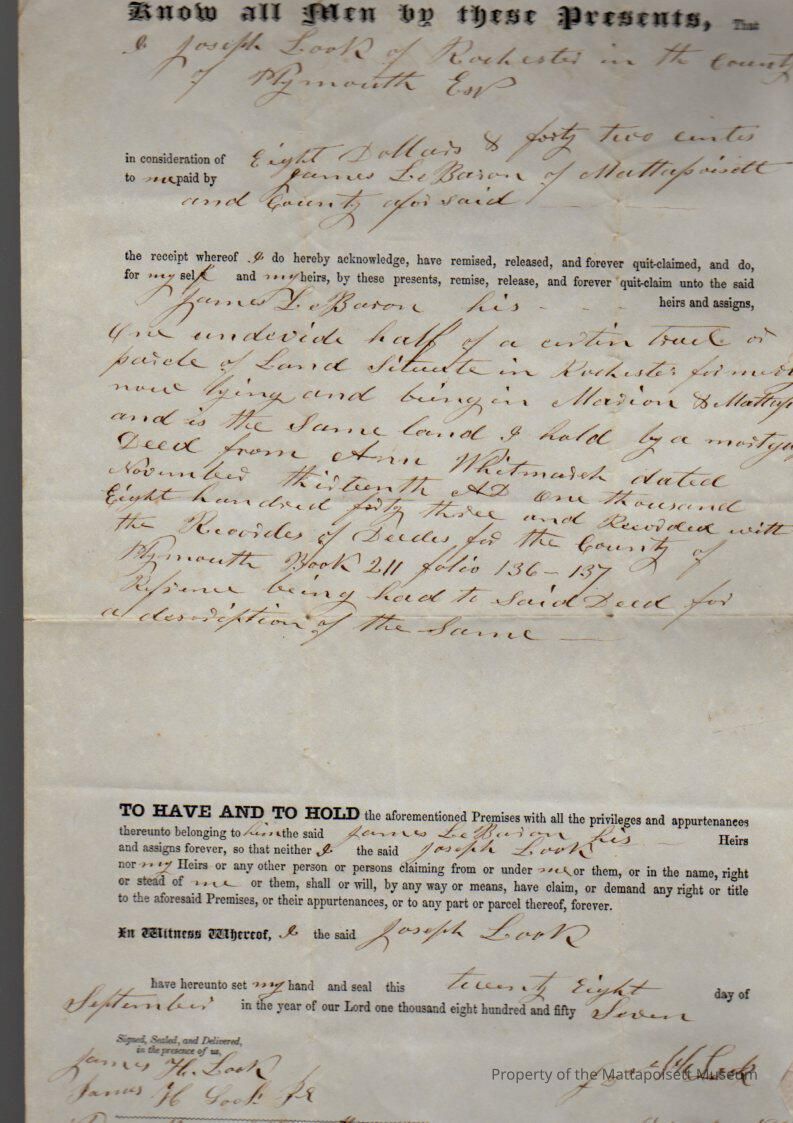 Know all Men by these Presents, That
I Joseph Look of Rochester in the County
of Plymouth Esq
in consideration of Eight Dollars & forty two cents
to me paid by James LeBaron of Mattapoisett
and County aforsaid
the receipt whereof I do hereby acknowledge, have remised, released, and forever quit-claimed, and do,
for my self and my heirs, by these presents, remise, release, and forever quit-claim unto the said
James LeBaron his heirs and assigns,
One undivide half of a certin tract or
parcle of Land Situate in Rochester formerly
now lying and being in Marion & Mattap
and is the Same land I hold by a mortga
Deed from Ann Whitmarsh dated
November thirteenth AD One thousand
Eight hundred forty three and Recorded with
the Recordes of Deedes for the County of
Plymouth Book 211 folio 136-137
Refrence being had to Said Deed for
a desoription of the Same
TO HAVE AND TO HOLD the aforementioned Premises with all the privileges and appurtenances
thereunto belonging to him the said James LeBaron his Heirs
and assigns forever, so that neither I the said Joseph Look
nor my Heirs or any other person or persons claiming from or under me or them, or in the name, right
or stead of me or them, shall or will, by any way or means, have claim, or demand any right or title
to the aforesaid Premises, or their appurtenances, or to any part or parcel thereof, forever.
In Witness Whereof, I the said Joseph Look
have hereunto set my hand and seal this twenty Eight day of
September in the year of our Lord one thousand eight hundred and fifty Seven
Signed, Sealed, and Delivered,
in the presence of us,
James H. Look
James H Look Jr
Look
Property of the Mattapoisett Museum